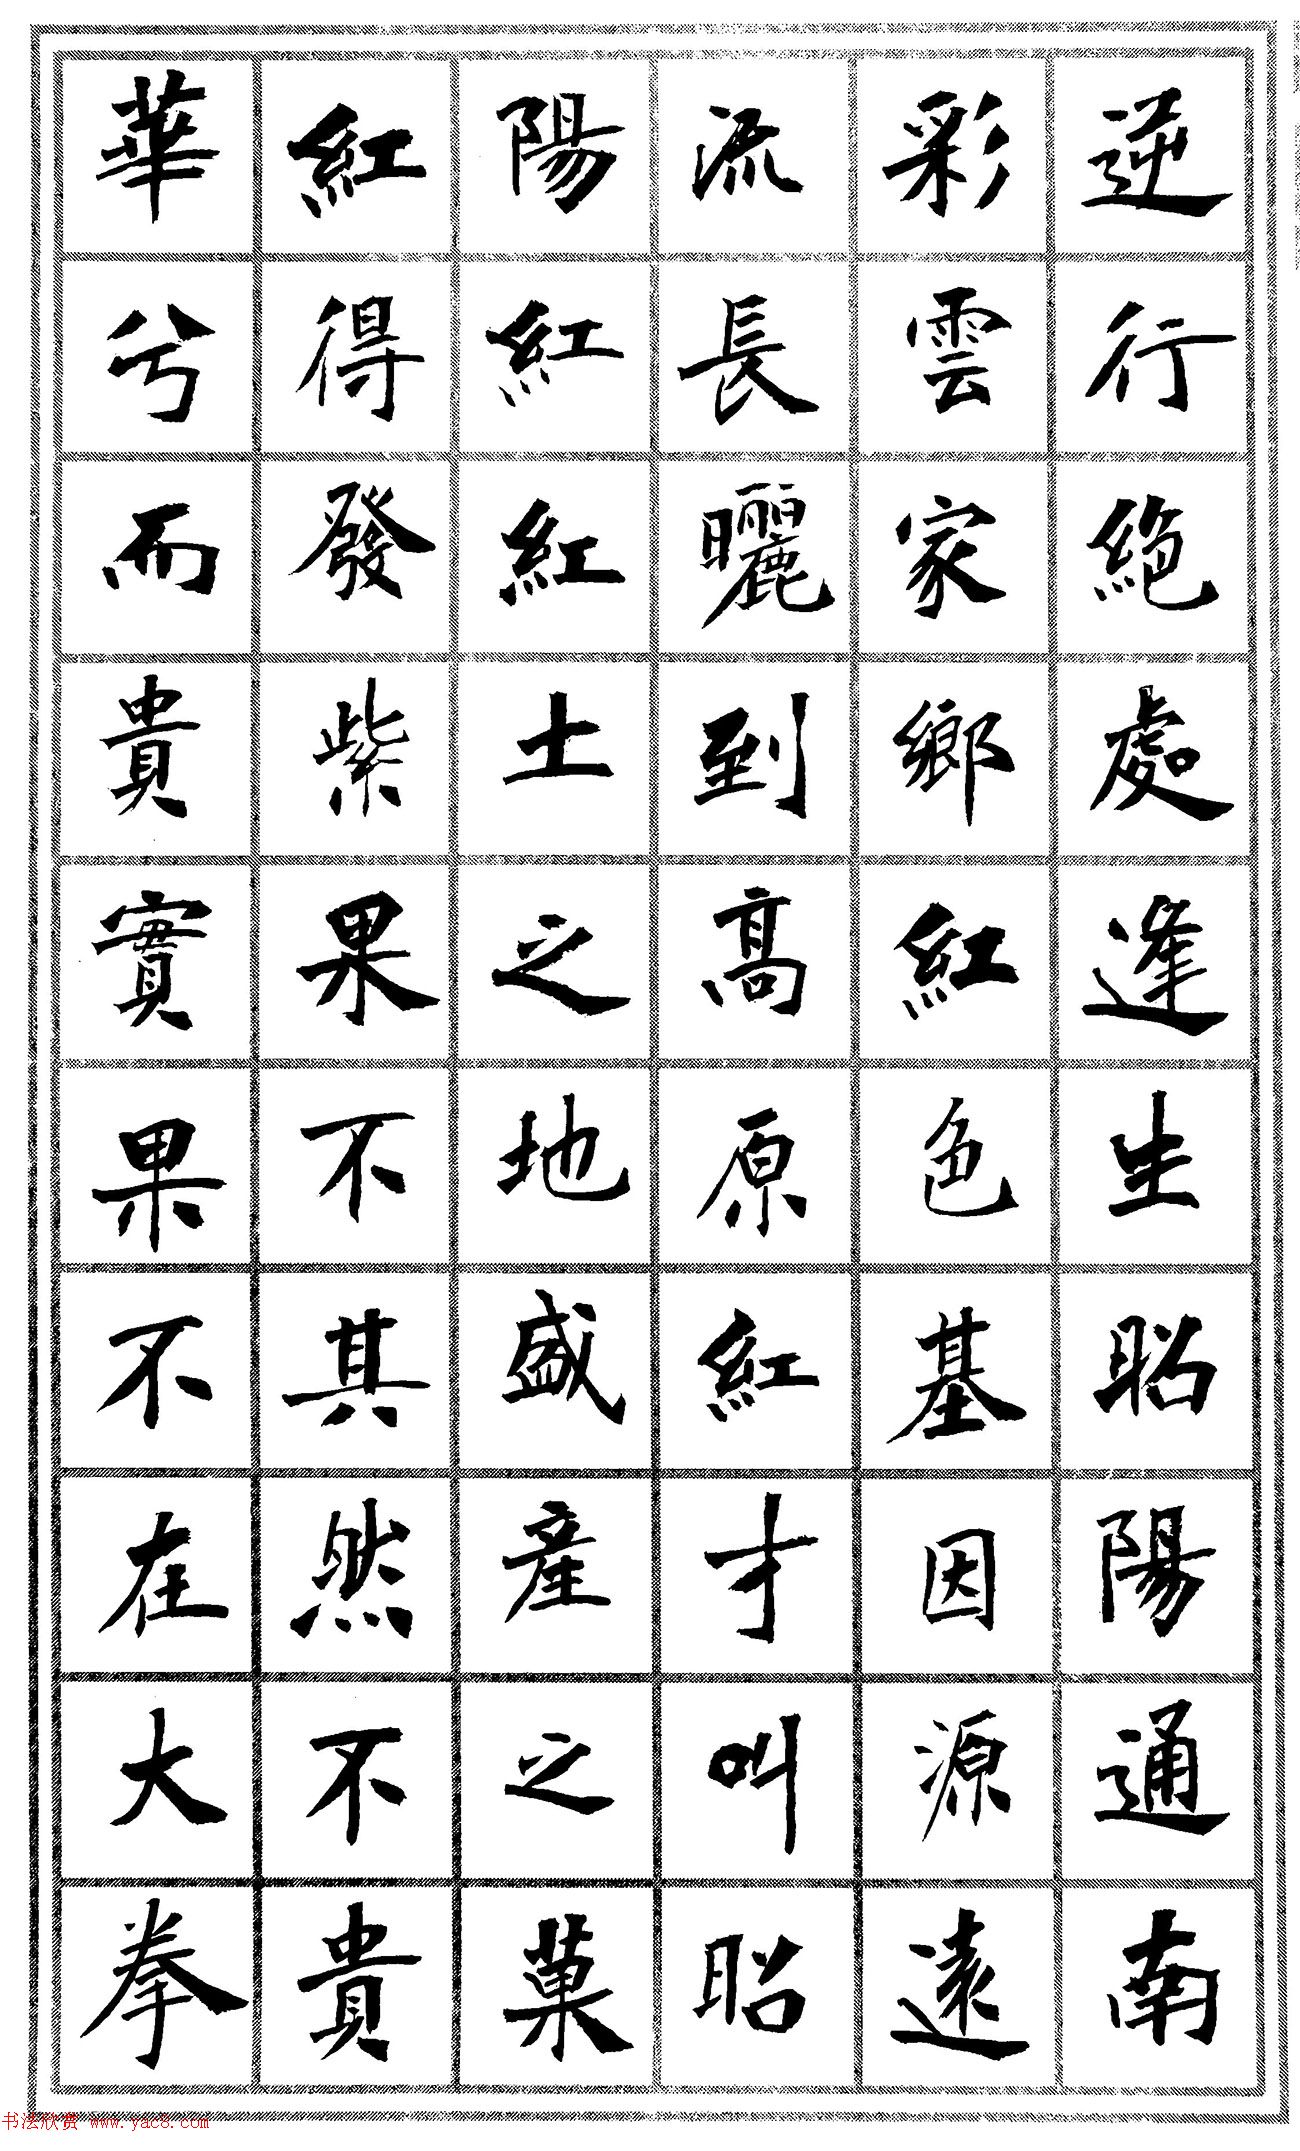 逆行絕處逢生昭陽通南
彩雲家鄉紅色基因源遠
流長曬到高原紅才叫昭
陽紅紅土之地盛產之菓
紅得發紫果不其然不貴
華兮而貴實果不在大拳
书法欣赏 www.yac8.com